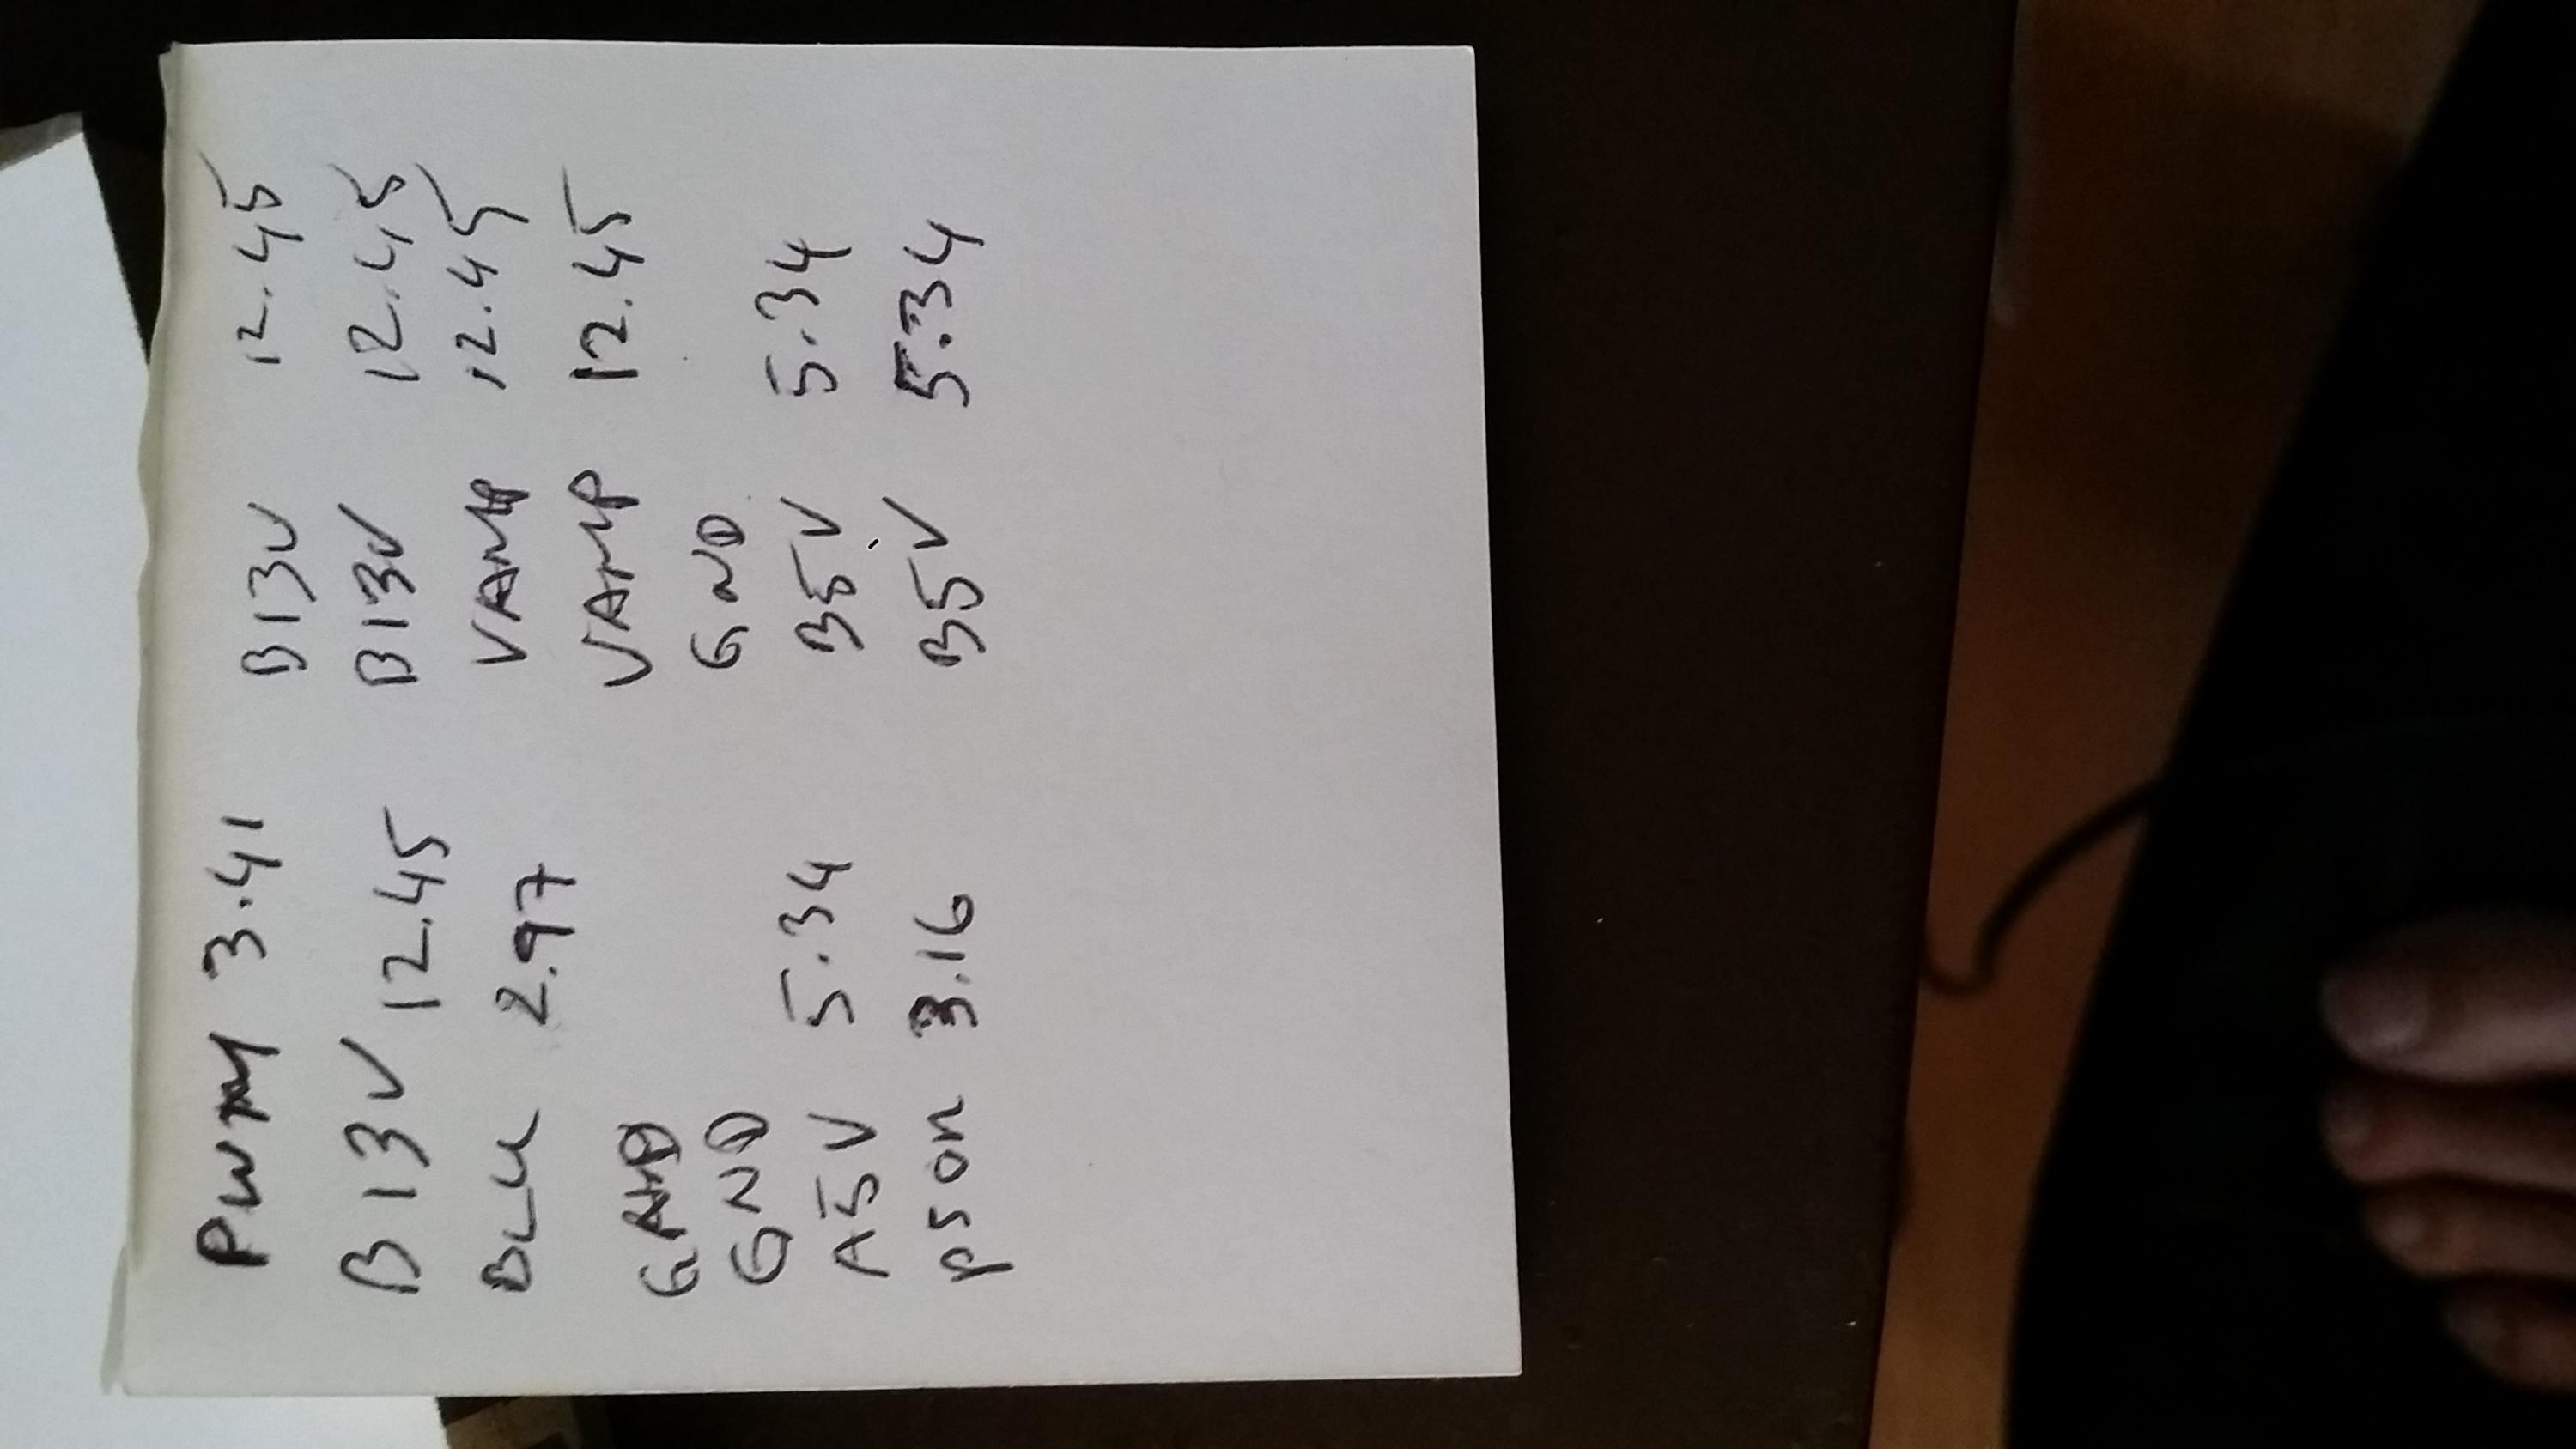 PWM 3.41 B13V 12.45
B13V 12.45 B13V 12.45
BLU 2.97 VAMP 12.45
GND VAMP 12.45
GND GND
A5V 5.34 B5V 5.34
PSON 3.16 B5V 5.34